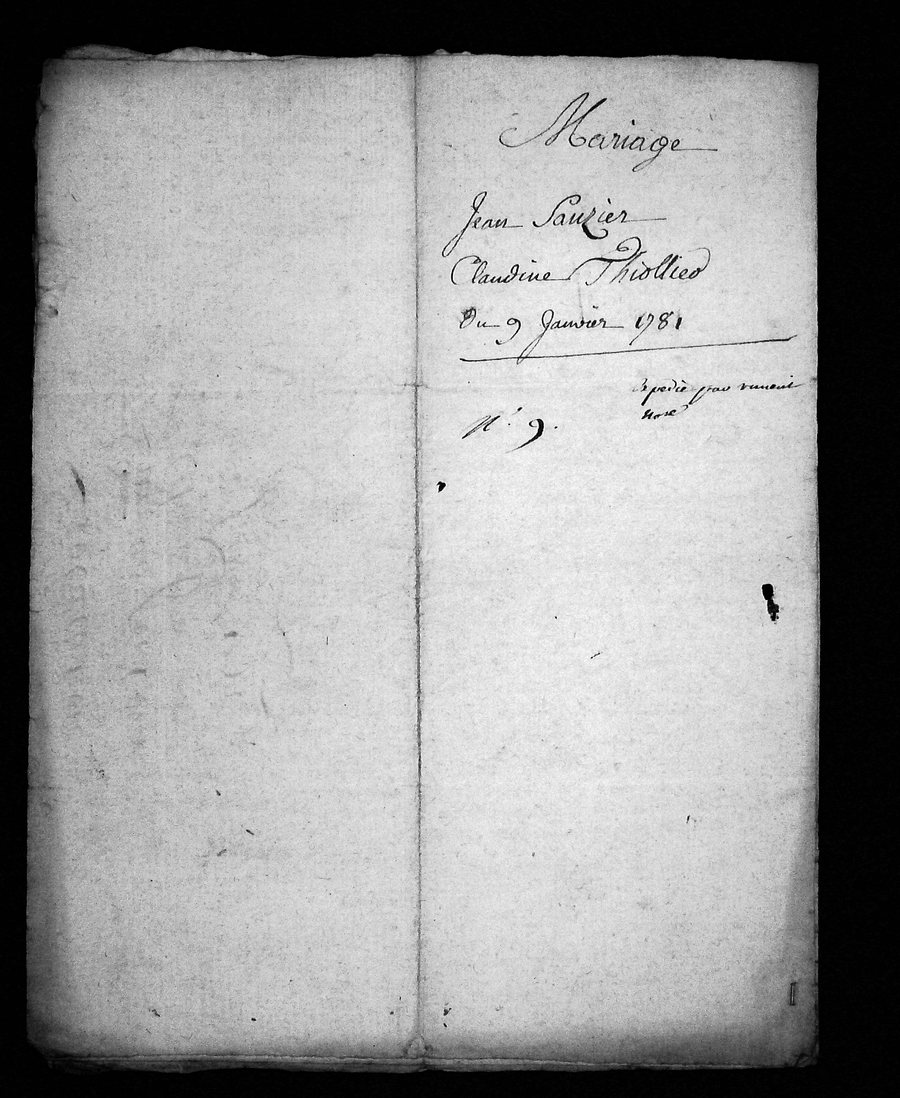 Mariage
Jean Sauzier
Claudine Thiollier
du 9 Janvier 1781
expedié par
N.° 9.